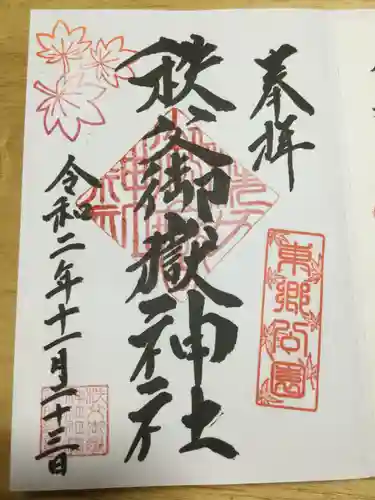 奉拝
東郷公園
秩父御嶽神社
令和二年十一月二十三日